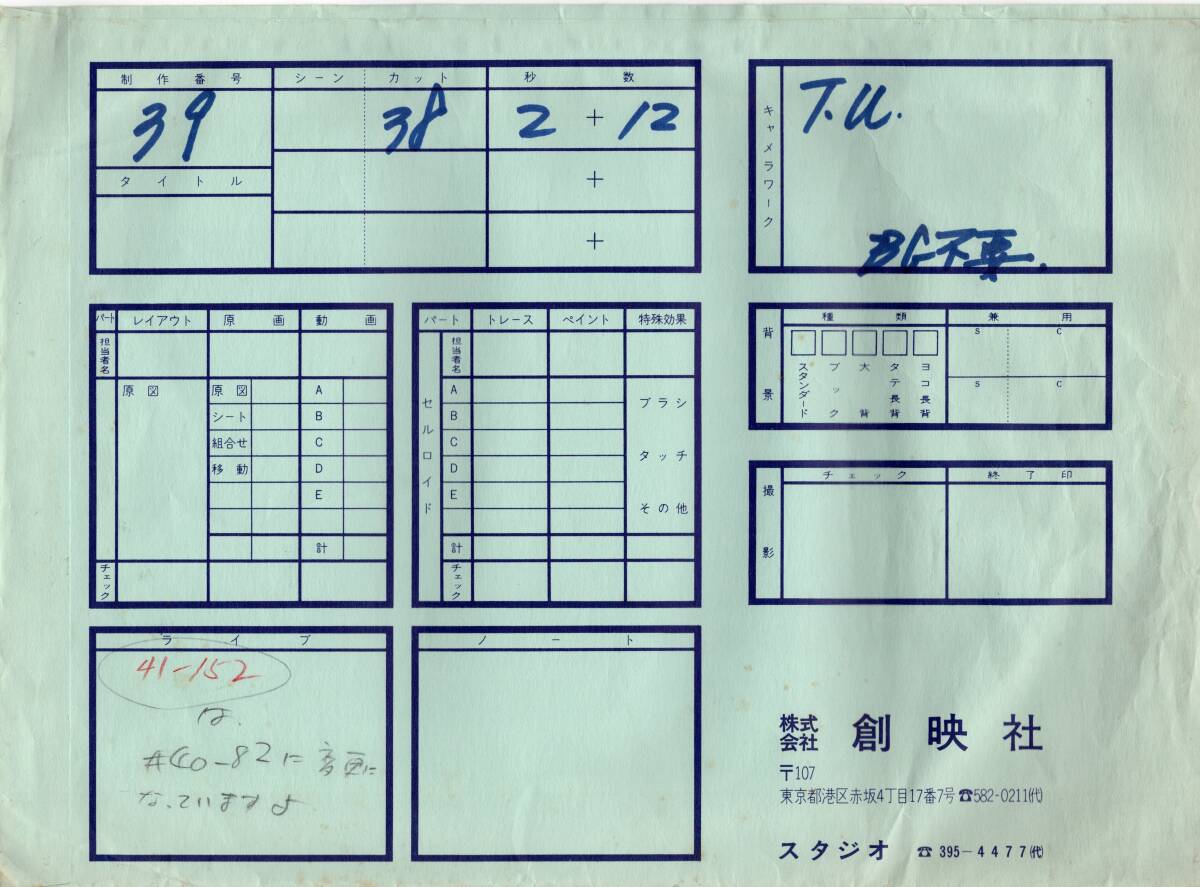 制作番号 シーン カット 秒数
39 38 2 + 12
タイトル
+
+
キャメラワーク
T.U.
BG不要.
パート レイアウト 原画 動画
担当者名
原図 原図 A
シート B
組合せ C
移動 D
E
計
チェック
パート トレース ペイント 特殊効果
担当者名
セルロイド
A
B
C
D
E
計
チェック
ブラシ
タッチ
その他
背景
種類 兼用
スタンダード ブック 大背 タテ長背 ヨコ長背
S C
S C
撮影
チェック 終了印
ライブ
41-152
は、
#40-82に変更に
なっていますよ
ノート
株式会社 創映社
〒107
東京都港区赤坂4丁目17番7号 ☎582-0211(代)
スタジオ ☎ 395-4477(代)